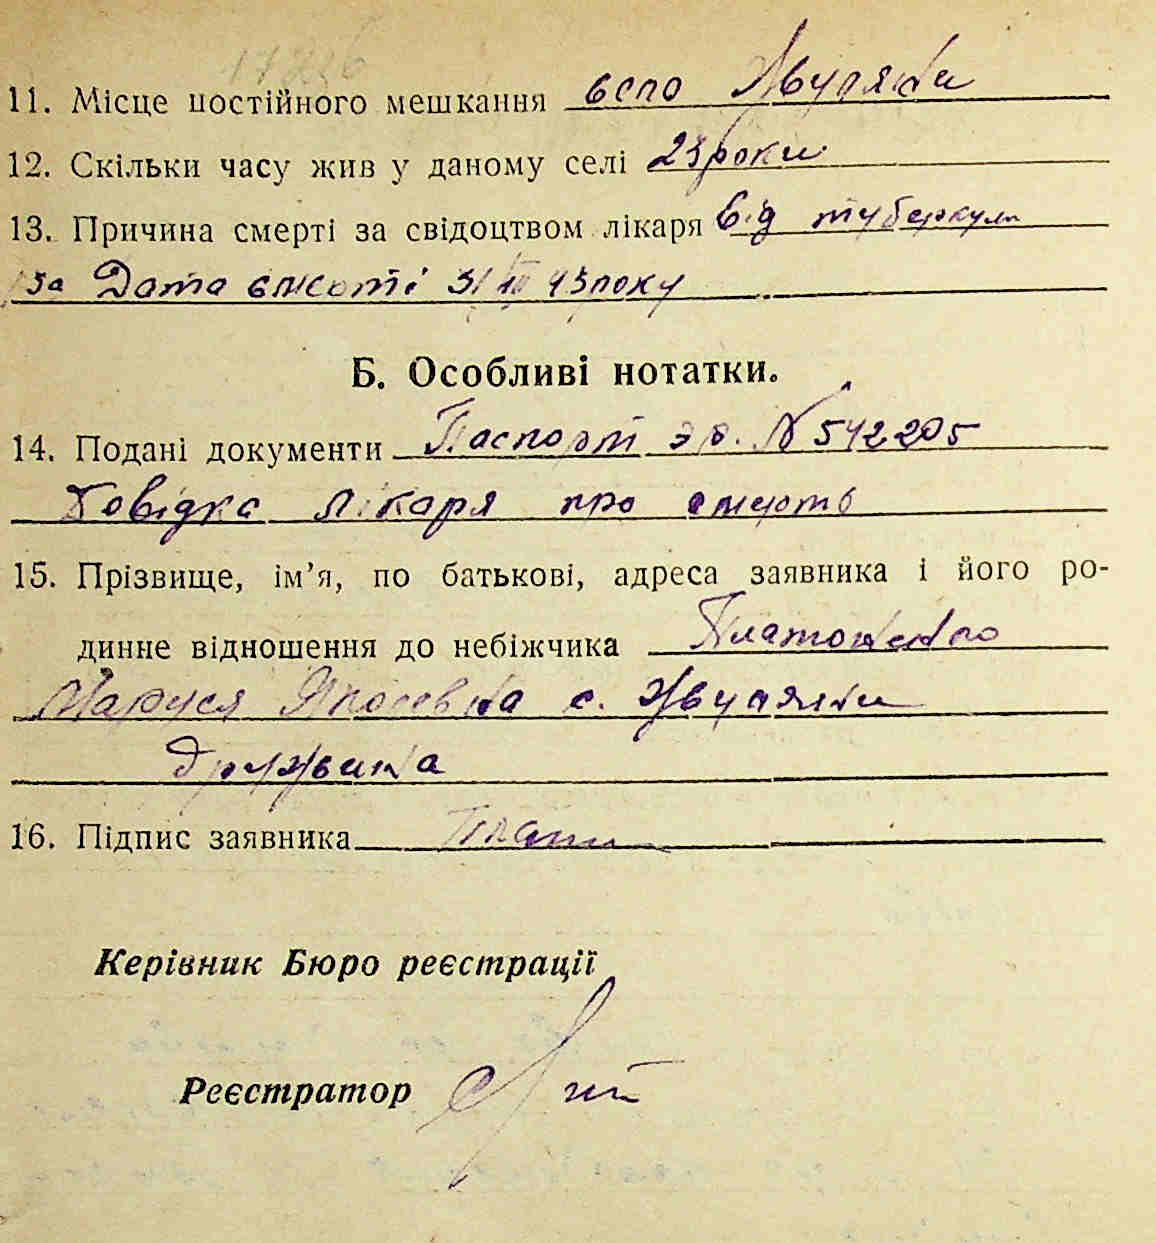 11. Місце постійного мешкання село Жвуляки
12. Скільки часу жив у даному селі 23 роки
13. Причина смерті за свідоцтвом лікаря Від туберкульо
за Дата смерті 31 III 43 року
Б. Особливі нотатки.
14. Подані документи Паспорт № 542205
Довідка лікаря про смерть
15. Прізвище, ім’я, по батькові, адреса заявника і його ро-
динне відношення до небіжчика Платоненко
Маруся с. Жвуляки
дружина
16. Підпис заявника Плат
Керівник Бюро реєстрації
Реєстратор